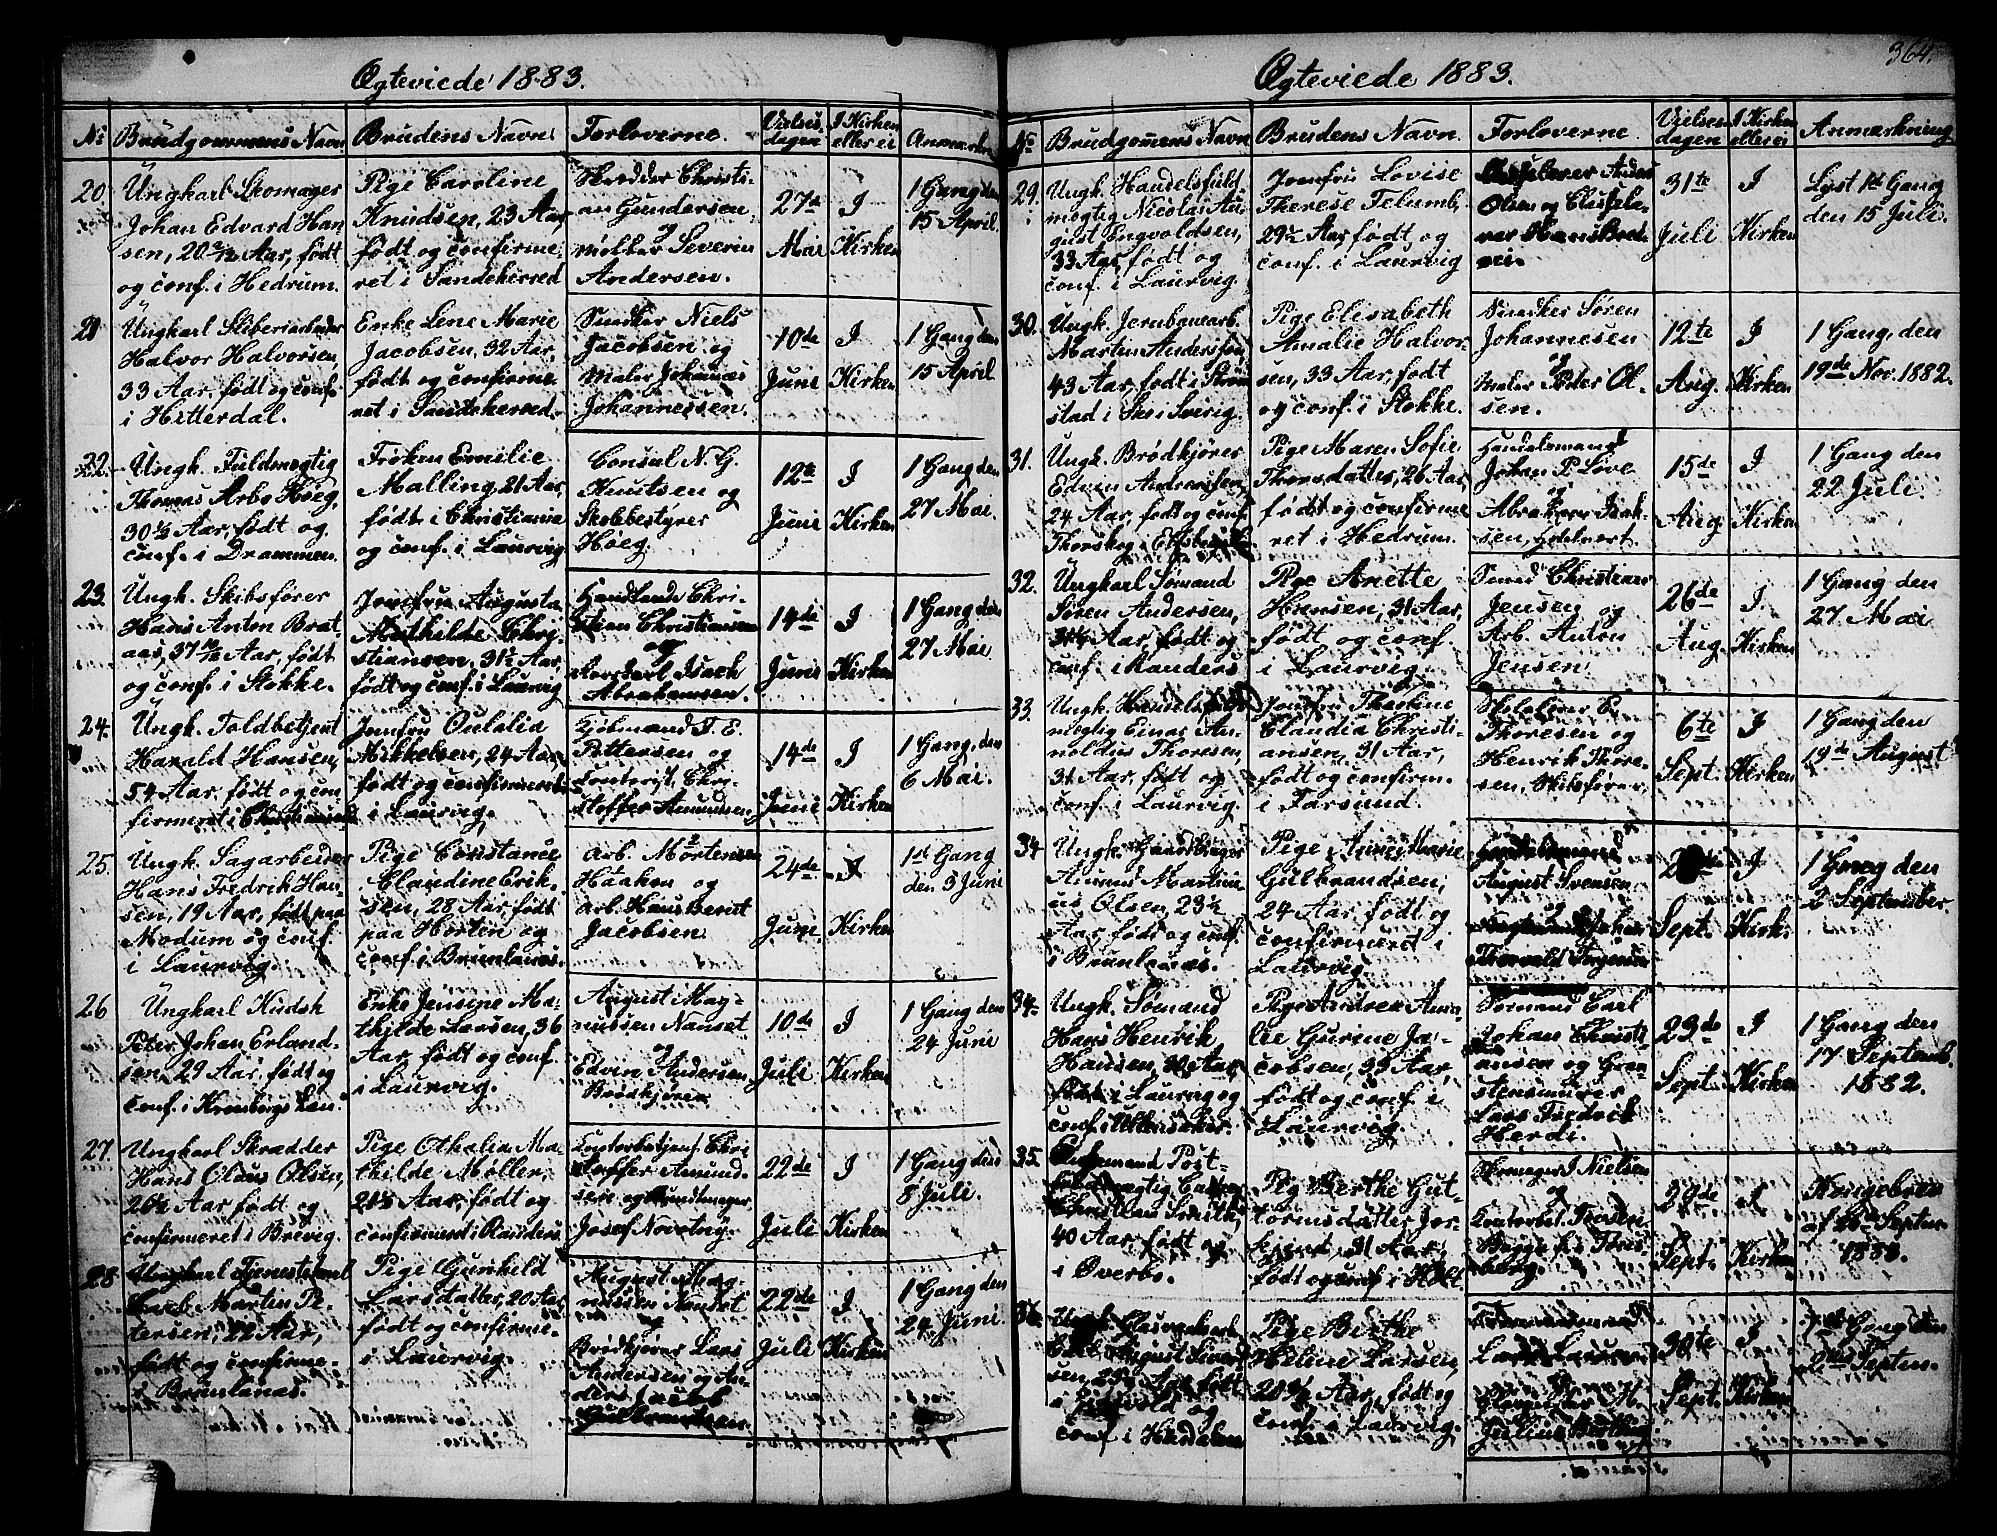 364.
Ægteviede 1883.
Nº
Brudgommens Navn
Brudens Navn
Forloverne
Vielses
dagen
I Kirken
eller ei
Anmærkn
20.
Ungkarl Skomager
Johan Edvard Han
sen, 20 Aar, født
og conf. i Hedrum.
Pige Caroline
Knudsen, 23 Aar,
født og confirme
ret i Sandeherred
Skrædder Christi
an Gundersen
og
Møller Severin
Andersen.
27de
Mai
I
Kirken
1 Gang den
15 April.
21
Ungkarl Sliberiarbeider
Halvor Halvorsen,
33 Aar, født og conf.
i Hitterdal.
Enke Lene Marie
Jacobsen, 32 Aar,
født og confirme
ret i Sandeherred.
Snedker Niels
Jacobsen og
Maler Johannes
Johannessen.
10de
Juni
I
Kirken
1 Gang den
15 April
22.
Ungk. Fuldmægtig
Thomas Arbo Høeg,
30½ Aar, født og
conf. i Drammen.
Frøken Emilie
Malling, 21 Aar,
født i Christiania
og conf. i Laurvig
Consul N. G.
Knutsen og
Skolebestyrer
Høeg.
12te
Juni
I
Kirken
1 Gang den
27 Mai.
23.
Ungk. Skibsfører
Hans Anton Brat
aas, 37 Aar, født
og conf. i Stokke.
Jomfru Augusta
Mathilde Chri
stiansen, 31½ Aar,
født og conf. i Laurvig
Chri-
stian Christiansen
og
Isach
Abrahamsen.
14de
Juni
I
Kirken
1 Gang den
27 Mai
24.
Ungk. Toldbetjent
Harald Hansen,
54 Aar, født og con
firmeret i Christiansand
Jomfru Oulalia
Mikkelsen, 24 Aar,
født og confirmeret
i Laurvig.
Kjøbmand T. E.
Pettersen og
Contorist Chri-
stoffer Amundsen
14de
Juni
I
Kirken
1 Gang, den
6 Mai.
25.
Ungk. Sagarbeider
Hans Fredrik Han
sen, 19 Aar, født paa
Modum og conf.
i Laurvig.
Pige Constance
Claudine Erik-
sen, 28 Aar, født
paa Horten og
conf. i Brunlanæs.
Arb. Mortensen
Haaken og
Arb. Hans Bernt
Jacobsen
24de
Juni
I
Kirken
1st Gang
den 3 Juni
26
Ungkarl Kudsk
Peter Johan Erland-
sen, 29 Aar, født og
conf. i Kronbergs Læn.
Enke Jensine Ma-
thilde Larsen, 36
Aar, født og conf.
i Laurvig.
August Mag-
nussen Nanset
og
Edvin Andersen
Brødkjører
10de
Juli
I
Kirken
1 Gang den
24 Juni
27.
Ungkarl Skrædder
Hans Olaus Olsen,
26½ Aar født og
confirmeret i Brevig.
Pige Othalia Ma-
thilde Møller,
21½ Aar, født og
confirmeret i Randers
Contorbetjent Chri
stoffer Amund-
sen og
Josef Novotny.
22de
Juli
I
Kirken
1 Gang den
8 Juli.
28
Ungkarl Tjenestekarl
Martin Pe-
tersen, 22 Aar,
født og confirme-
i Brunlanæs.
Pige Gunhild
Larsdatter, 20 Aar,
født og confirme-
i Laurvig.
August Mag-
nussen Nanset
og
Brødkjører Lars
Andersen og An-
ders Jacob
Gulbrandsen.
22de
Juli
I
Kirken
1 Gang den
24 Juni
Ægteviede 1883.
Nº
Brudgommens Navn
Brudens Navn.
Forloverne
Vielses
dagen
I Kirken
eller ei
Anmærkning
29.
Ungk. Handelsfuld
mægtig Nicolai Au-
gust Engvoldsen,
33 Aar, født og
conf. i Laurvig.
Jomfru Lovise
Therese Telumb,
29½ Aar, født og
conf. i Laurvig
Anders
Olsen og
Hans
31te
Juli
I
Kirken
Lyst 1st Gang
den 15 Juli.
30.
Ungk. Jernbanearb.
Martin Andersson,
43 Aar, født i Strøm
stad i Sverig.
Pige Elisabeth
Amalie Halvor-
sen, 33 Aar, født
og conf. i Stokke.
Snedker Søren
Johannesen
og
Maler Peter Ol-
sen.
12te
Aug.
I
Kirken
1 Gang, den
19de Nov. 1882.
31.
Ungk. Brødkjører
Edvin Andreassen,
24 Aar, født og conf.
Pige Maren Sofie
Thorsdatter, 26 Aar,
født og confirme
ret i Hedrum.
Handelsmand
Johan P. Løve
og
Abraham Isak-
sen,
15de
Aug
I
Kirken
1 Gang den
22 Juli.
32.
Ungkarl Sømand
Søren Andersen,
31¼ Aar, født og
conf. i Randers
Pige Anette
Hansen, 31 Aar,
født og conf.
i Laurvig.
Smed Christian
Jensen og
Arb. Anton
Jensen.
26de
Aug.
I.
Kirken
1 Gang den
27 Mai
33.
Ungk. Handelsfuld
mægtig Einar Ar
noldius Thoresen,
31 Aar, født og
conf. i Laurvig.
Jomfru Thorine
Claudia Christi-
ansen, 31 Aar,
født og confirm.
i Farsund.
E.
Thoresen og
Henrik Thore-
sen, Skibsfører,
6te
Sept.
I
Kirken
1 Gang den
19de August
34
Ungk. Gaardbruger
Martini
us Olsen, 23½
Aar, født og conf.
i Brunlanæs.
Pige Anne Marie
Gulbrandsen,
24 Aar, født og
confirmeret i
Laurvig.
August Svensen
Johan
Thorvald
Sept.
I
Kirk.
1 Gang den
2 September.
34
Ungk. Sømand
Hans Henrik
Hansen, 30 Aar,
født i Laurvig og
conf. i Ullensaker.
Pige Andrea Ama-
lie Gurine Ja-
cobsen, 35 Aar,
født og conf. i
Laurvig.
Sømand Carl
Johan Christi
ansen og
Lars Fredrik
Herdi.
23de
Sept.
I
Kirken
1 Gang den
17 Septemb.
1882.
35.
Enkemand Post-
Christian Smith,
40 Aar, født og
i Øverbo.
Pige Berthe Gut-
tormsdatter Jor-
31 Aar,
født og conf. i Holt
Skomager J. Nielsen
og
29de
Sept.
I
Kirken
Kongebrev
af Septbr.
1883.
36.
Ungk.
August
født
og
conf. i
Pige Birthe
Heline Larsen,
28 Aar, født og
conf. i Laurvig.
Julius
30te
Sept.
I
Kirken
1st Gang den
Septbr.